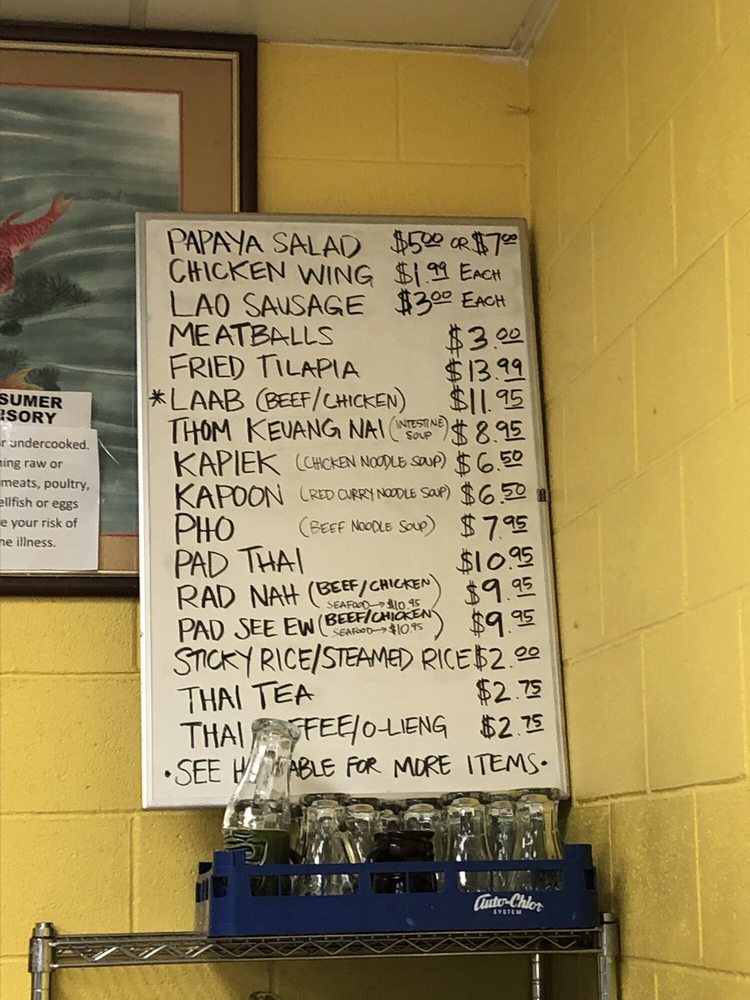 PAPAYA SALAD $5.00 OR $7.00
CHICKEN WING $1.99 EACH
LAO SAUSAGE $3.00 EACH
MEATBALLS $3.00
FRIED TILAPIA $13.99
* LAAB (BEEF/CHICKEN) $11.95
THOM KEUANG NAI (INTESTINE SOUP) $8.95
KAPIEK (CHICKEN NOODLE SOUP) $6.50
KAPOON (RED CURRY NOODLE SOUP) $6.50
PHO (BEEF NOODLE SOUP) $7.95
PAD THAI $10.95
RAD NAH (BEEF/CHICKEN) $9.95
SEAFOOD→$10.95
PAD SEE EW (BEEF/CHICKEN) $9.95
SEAFOOD→$10.95
STICKY RICE/STEAMED RICE $2.00
THAI TEA $2.75
THAI FFEE/O-LIENG $2.75
•SEE H ABLE FOR MORE ITEMS•
SUMER
ISORY
r undercooked.
ing raw or
meats, poultry,
ellfish or eggs
e your risk of
ne illness.
Auto-Chlor
SYSTEM